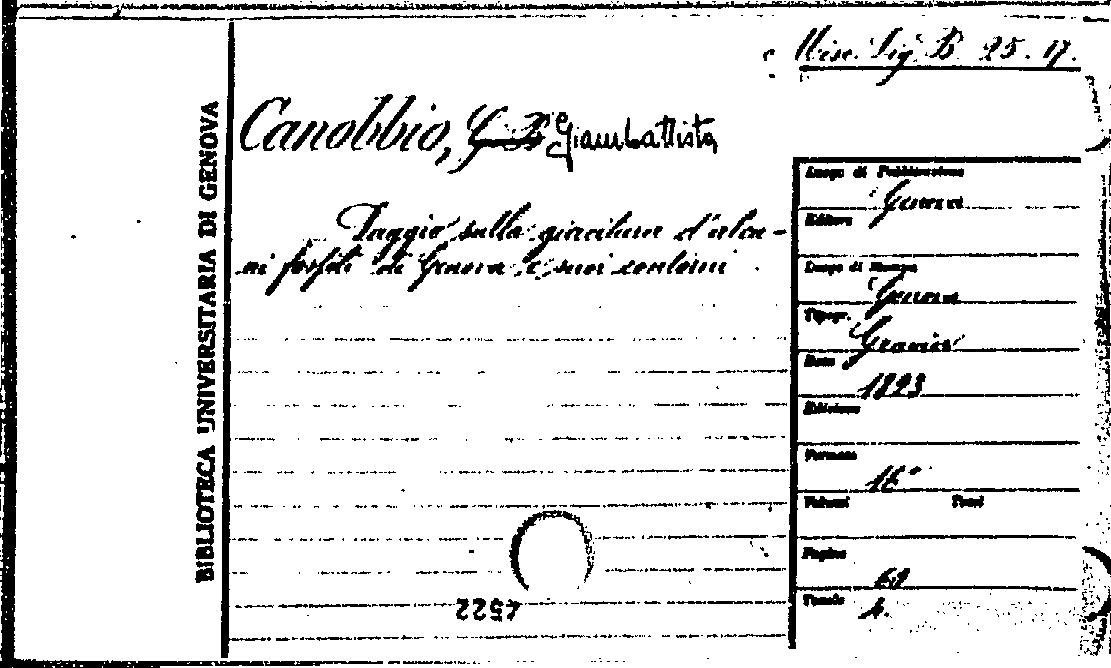 Misc. Lig. B 25. 17.
Canobbio, G. B. Giambattista
Saggio sulla giacitura d'alcu-
ni fossili di Genova e suoi contorni
BIBLIOTECA UNIVERSITARIA DI GENOVA
Luogo di Pubblicazione
Genova
Editore
Luogo di Stampa
Genova
Tipogr.
Gravier
Data
1823
Edizione
Formato
16°
Volumi Tomi
Pagine
Tavole
4.